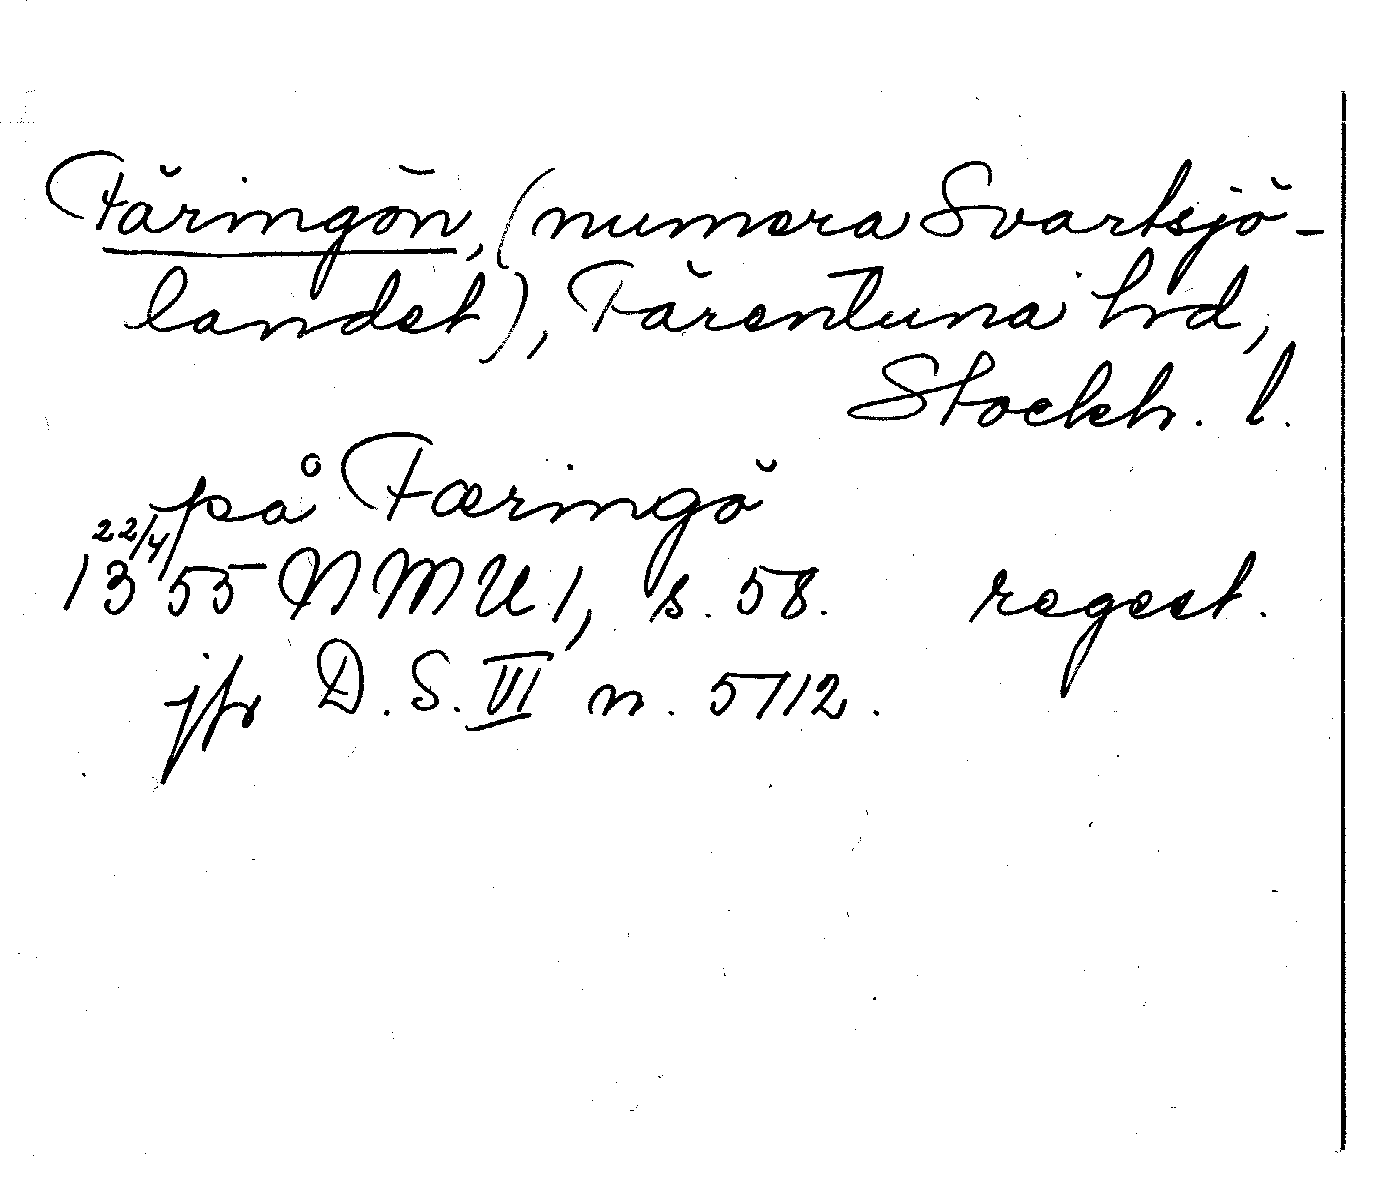 Färingön, (numera Svartsjö-
landet), Färentuna hrd,
Stockh. l.
på Færingö
22/4
1355 NMU 1, s. 58. regest.
jfr D.S. VI n. 5712.